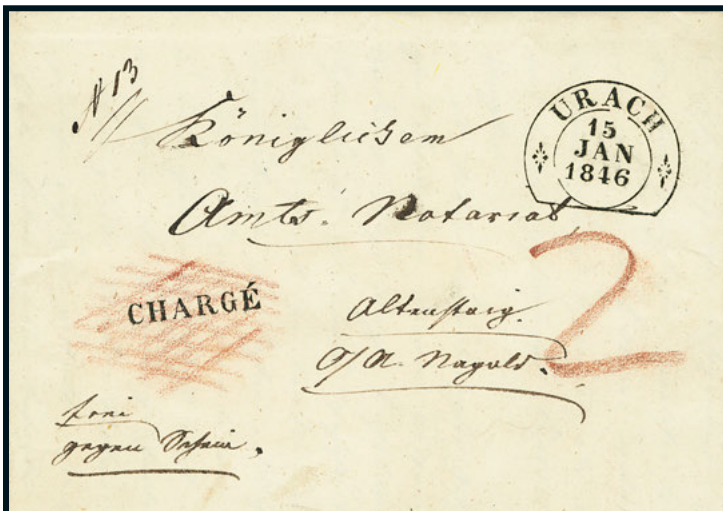 N 13
URACH
15
JAN
1846
Königlichem
Amts-Notariat
CHARGÉ
Altenstaig.
O/A. Nagold.
2
frei
gegen Schein.